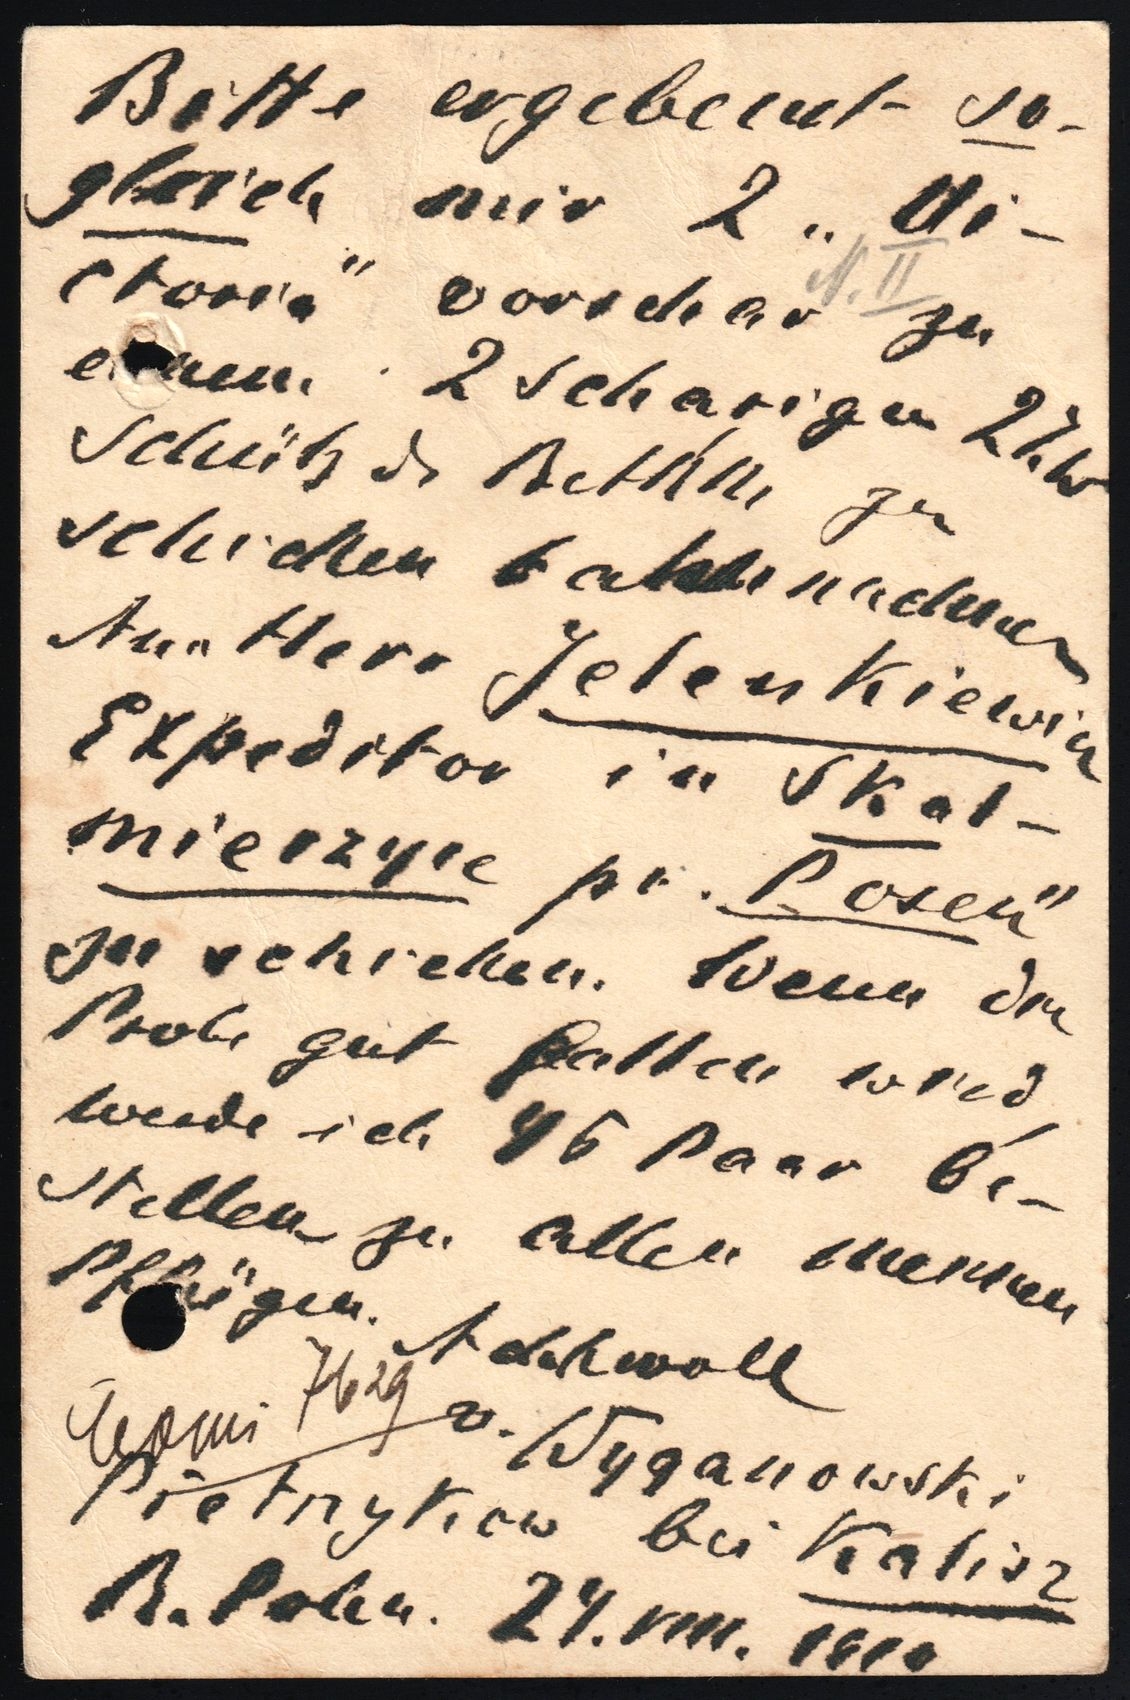 Bitte ergebenst so-
gleich mir 2 „Vi-
ctoria" vorschar zu
N. II
einem 2 scharigen
Schütz & Bethke zu
schicken bahnnachnen
Herr Jelenkiewicz
Expeditor in Skal-
mierzyce pr. Posen"
zu schicken. Wenn die
Probe gut fallen wird
werde ich 46 Paar be-
stellen zu allen meinen
Pflügen. Achtvoll
7629
v. Wyganowski
Pietrzykow bei Kalisz
R. Polen. 24. VIII. 1910